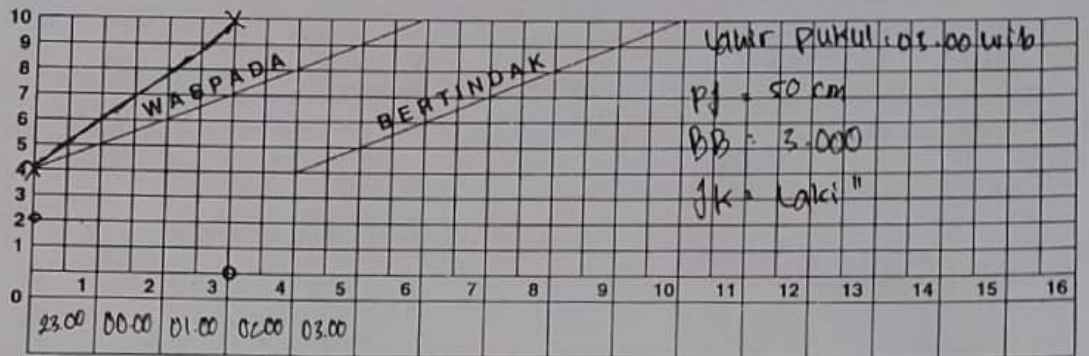 10
9
8
7
6
5
4
3
2
1
0
WASPADA
BERTINDAK
Lahir pukul : 03.00 wib
Pj = 50 cm
BB = 3.000
Jk = Laki "
1 2 3 4 5 6 7 8 9 10 11 12 13 14 15 16
23.00 00.00 01.00 02.00 03.00